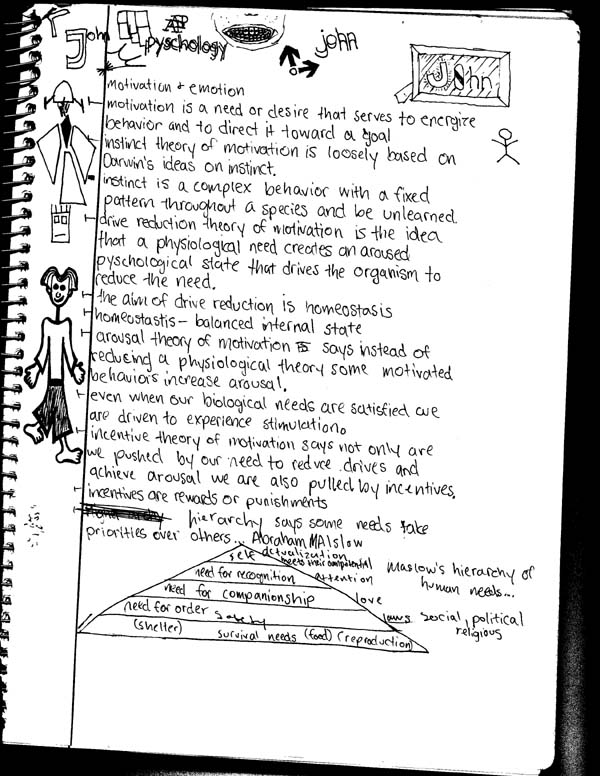 John
AP
pyschology
john
John
motivation + emotion
motivation is a need or desire that serves to energize
behavior and to direct it toward a goal
instinct theory of motivation is loosely based on
Darwin's ideas on instinct.
instinct is a complex behavior with a fixed
pattern throughout a species and be unlearned
drive reduction theory of motivation is the idea
that a physiological need creates an aroused
pyschological state that drives the organism to
reduce the need.
the aim of drive reduction is homeostasis
homeostastis - balanced internal state
arousal theory of motivation says instead of
reducing a physiological theory some motivated
behaviors increase arousal.
even when our biological needs are satisfied we
are driven to experience stimulation.
incentive theory of motivation says not only are
we pushed by our need to reduce drives and
achieve arousal we are also pulled by incentives.
incentives are rewards or punishments
hierarchy says some needs take
priorities over others... Abraham MAlslow
self actualization
meets their own potential
need for recognition attention
Maslow's hierarchy of
human needs...
need for companionship love
need for order safety
laws social, political
religious
(shelter) survival needs (food) (reproduction)